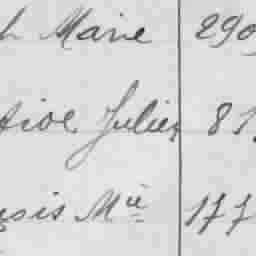 h Marie 290
tive Julien 81
nsis Mie 177